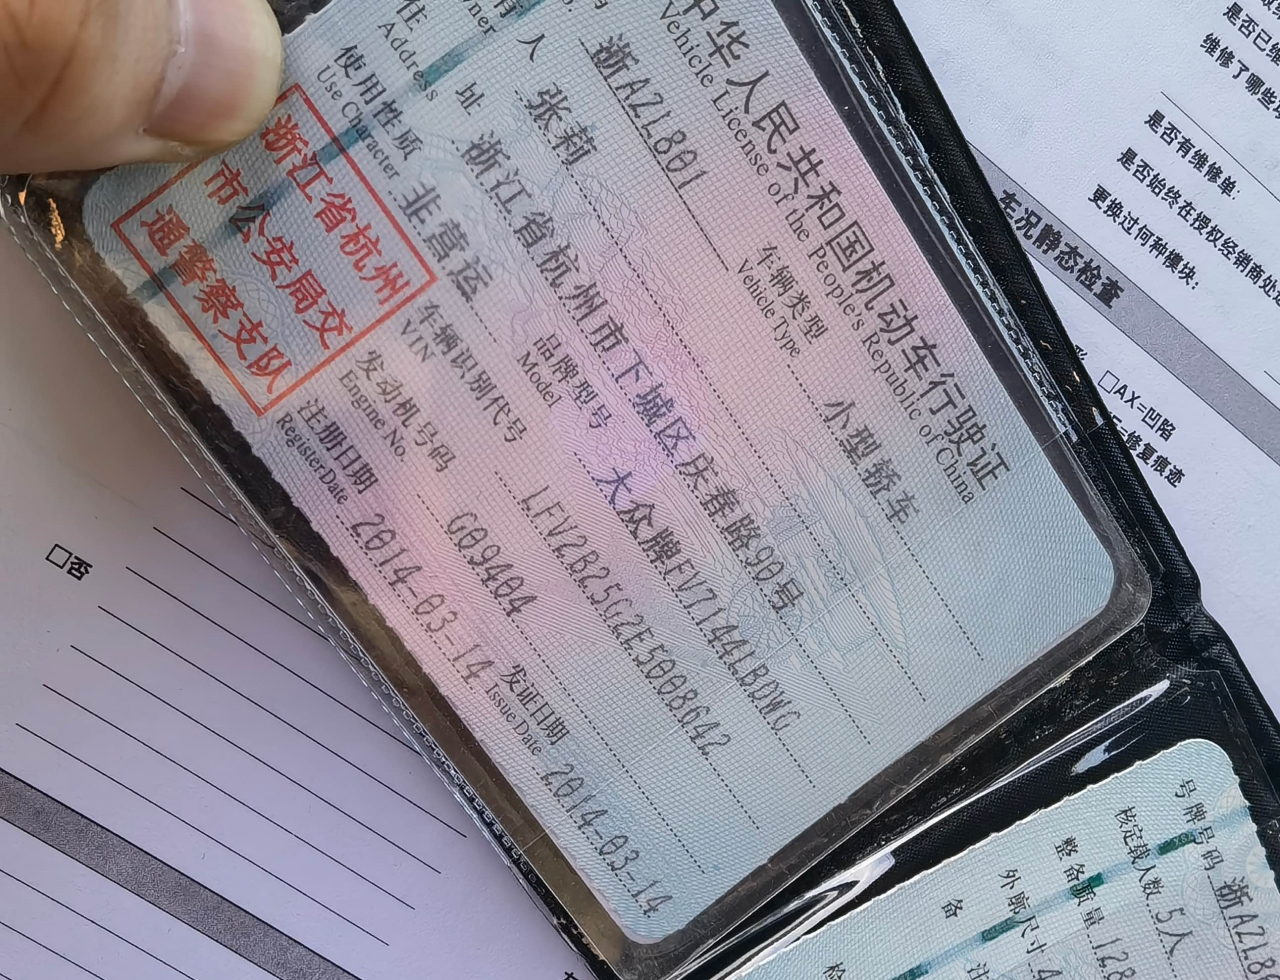 中华人民共和国机动车行驶证
Vehicle License of the People's Republic of China
浙AZL801
车辆类型
Vehicle Type
小型轿车
人
张莉
住
址
Address
浙江省杭州市下城区庆春路90号
使用性质
Use Character
非营运
品牌型号
Model
大众牌FV7144LBDWG
浙江省杭州
市公安局交
通警察支队
车辆识别代号
VIN
LFV2B25G2E5008642
发动机号码
Engine No.
G09404
注册日期
Register Date
2014-03-14
发证日期
Issue Date
2014-03-14
号牌号码
浙AZL8
核定载人数
5人
整备质量
128
外廓尺寸
备
注
检
是否有维修单:
是否始终在授权经销商处
更换过何种模块:
车况静态检查
□AX=凹陷
=修复痕迹
□否